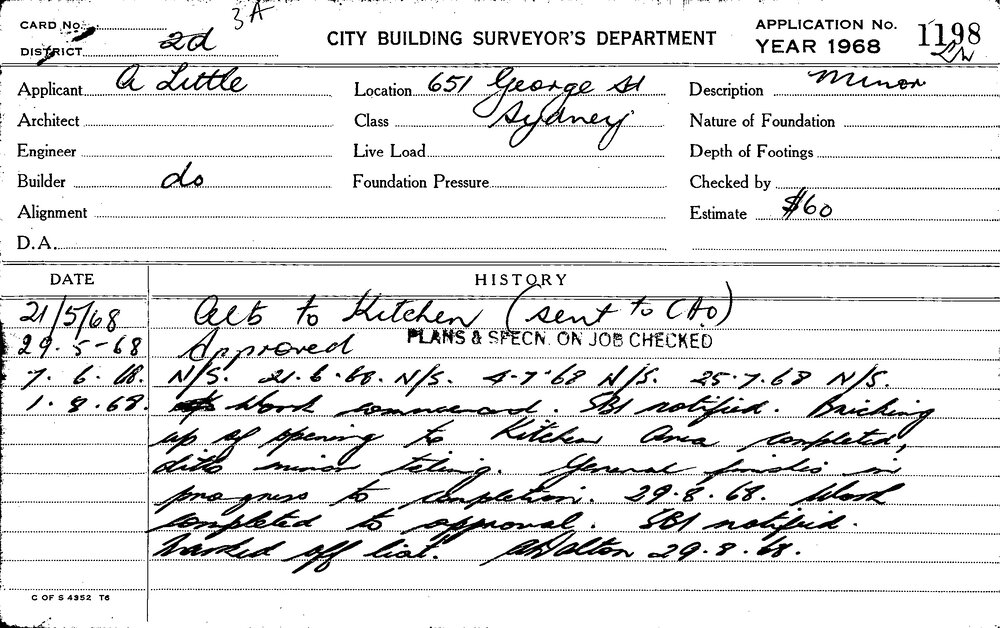 3A
CARD No.
DISTRICT 2d
CITY BUILDING SURVEYOR'S DEPARTMENT
APPLICATION No. 1198
YEAR 1968
Applicant A Little
Location 651 George St
Description Minor
Architect
Class Sydney
Nature of Foundation
Engineer
Live Load
Depth of Footings
Builder do
Foundation Pressure
Checked by
Alignment
Estimate $60
D.A.
DATE HISTORY
21/5/68 Alts to Kitchen (sent to CHO)
29.5-68 Approved PLANS & SPECN. ON JOB CHECKED
7.6.68. N/S. 21.6.68. N/S. 4-7-68 N/S. 25.7.68 N/S.
1.8.68. Work commenced. SBI notified. Bricking
up of opening to Kitchen Area completed,
ditto minor tiling. General finishes in
progress to completion. 29.8.68. Work
completed to approval. SBI notified.
Marked off list. 29.8.68.
C OF S 4352 T6